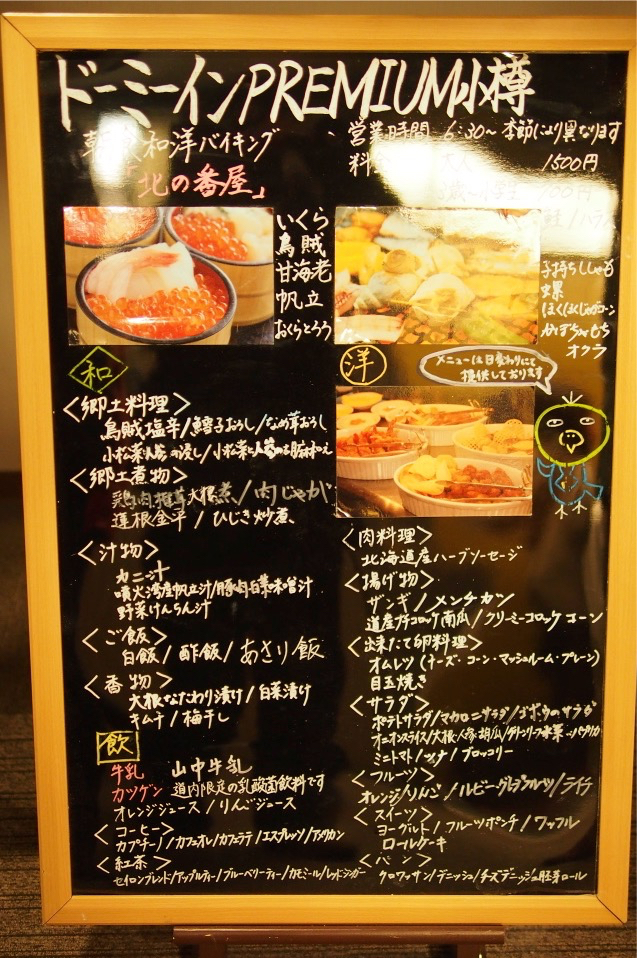 ドーミーインPREMIUM小樽
和洋バイキング
「北の番屋」
営業時間 6:30～季節により異なります
1500円
いくら
烏賊
甘海老
帆立
おくらとろろ
子持ちししゃも
ほくほくじゃがコーン
かぼちゃもち
オクラ
メニューは日替わりにて
提供しております
和
<郷土料理>
烏賊塩辛/鱈子おろし/なめ茸おろし
<郷土煮物>
大根煮/肉じゃが
蓮根金平/ひじき炒煮
<汁物>
カニ汁
噴火湾産帆立汁/豚肉白菜味噌汁
野菜けんちん汁
<ご飯>
白飯/酢飯/あさり飯
<香物>
大根なたわり漬け/白菜漬け
キムチ/梅干し
飲
牛乳 山中牛乳
カツゲン 道内限定の乳酸菌飲料です
オレンジジュース/りんごジュース
<コーヒー>
カプチーノ/カフェオレ/カフェラテ/エスプレッソ/アメリカン
<紅茶>
セイロンブレンド/アップルティー/ブルーベリーティー/カモミール/レッドジンガー
洋
<肉料理>
北海道産ハーブソーセージ
<揚げ物>
ザンギ/メンチカツ
道産プチコロッケ南瓜/クリーミーコロッケコーン
<出来たて卵料理>
オムレツ(チーズ・コーン・マッシュルーム・プレーン)
目玉焼き
<サラダ>
ポテトサラダ/マカロニサラダ/ゴボウのサラダ
オニオンスライス/大根/人参/胡瓜/
ミニトマト/ツナ/ブロッコリー
<フルーツ>
オレンジ/りんご/ルビーグレープフルーツ/ライチ
<スイーツ>
ヨーグルト/フルーツポンチ/ワッフル
ロールケーキ
<パン>
クロワッサン/デニッシュ/チーズデニッシュ胚芽ロール